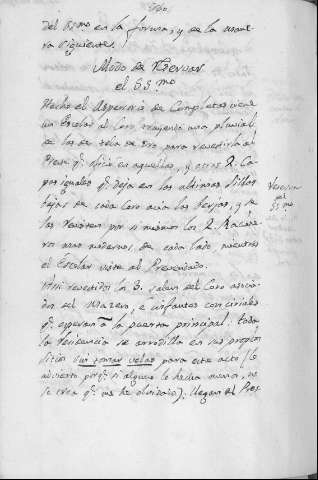 del SS.mo en la forma, y de la mane-
ra siguiente.
Modo de Reservar
el SS.mo
Hecho el Aspersorio de Completas viene
un Escolar al Coro trayendo una pluvial
de los de tela de oro para revestirla al
Preste q.e ofició en aquellas, y otras 2. Ca-
pas iguales q.e deja en las ultimas sillas
bajas de cada Coro acia las Rejas, y se
las revisten por si mismos los 2. Racione-
ros mas modernos de cada lado mientras
el Escolar viste al Presentado.
Reserva
del
SS.mo
Asi revestidos los 3. salen del Coro asocia-
dos del Macero, e infantes con ciriales
q.e esperan a la puerta principal: toda
la Residencia se arrodilla en sus propios
sitios sin tomar velas para este acto (lo
advierto porq.e si alguno le hecha menos, no
se crea q.e me he olvidado); llegan al Pres-